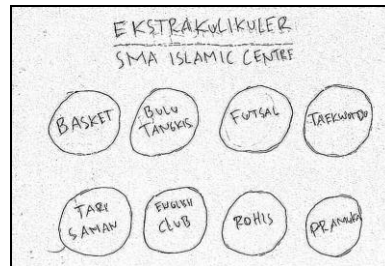 EKSTRAKULIKULER
SMA ISLAMIC CENTRE
BASKET
BULU
TANGKIS
FUTSAL
TAEKWONDO
TARI
SAMAN
ENGLISH
CLUB
ROHIS
PRAMUKA